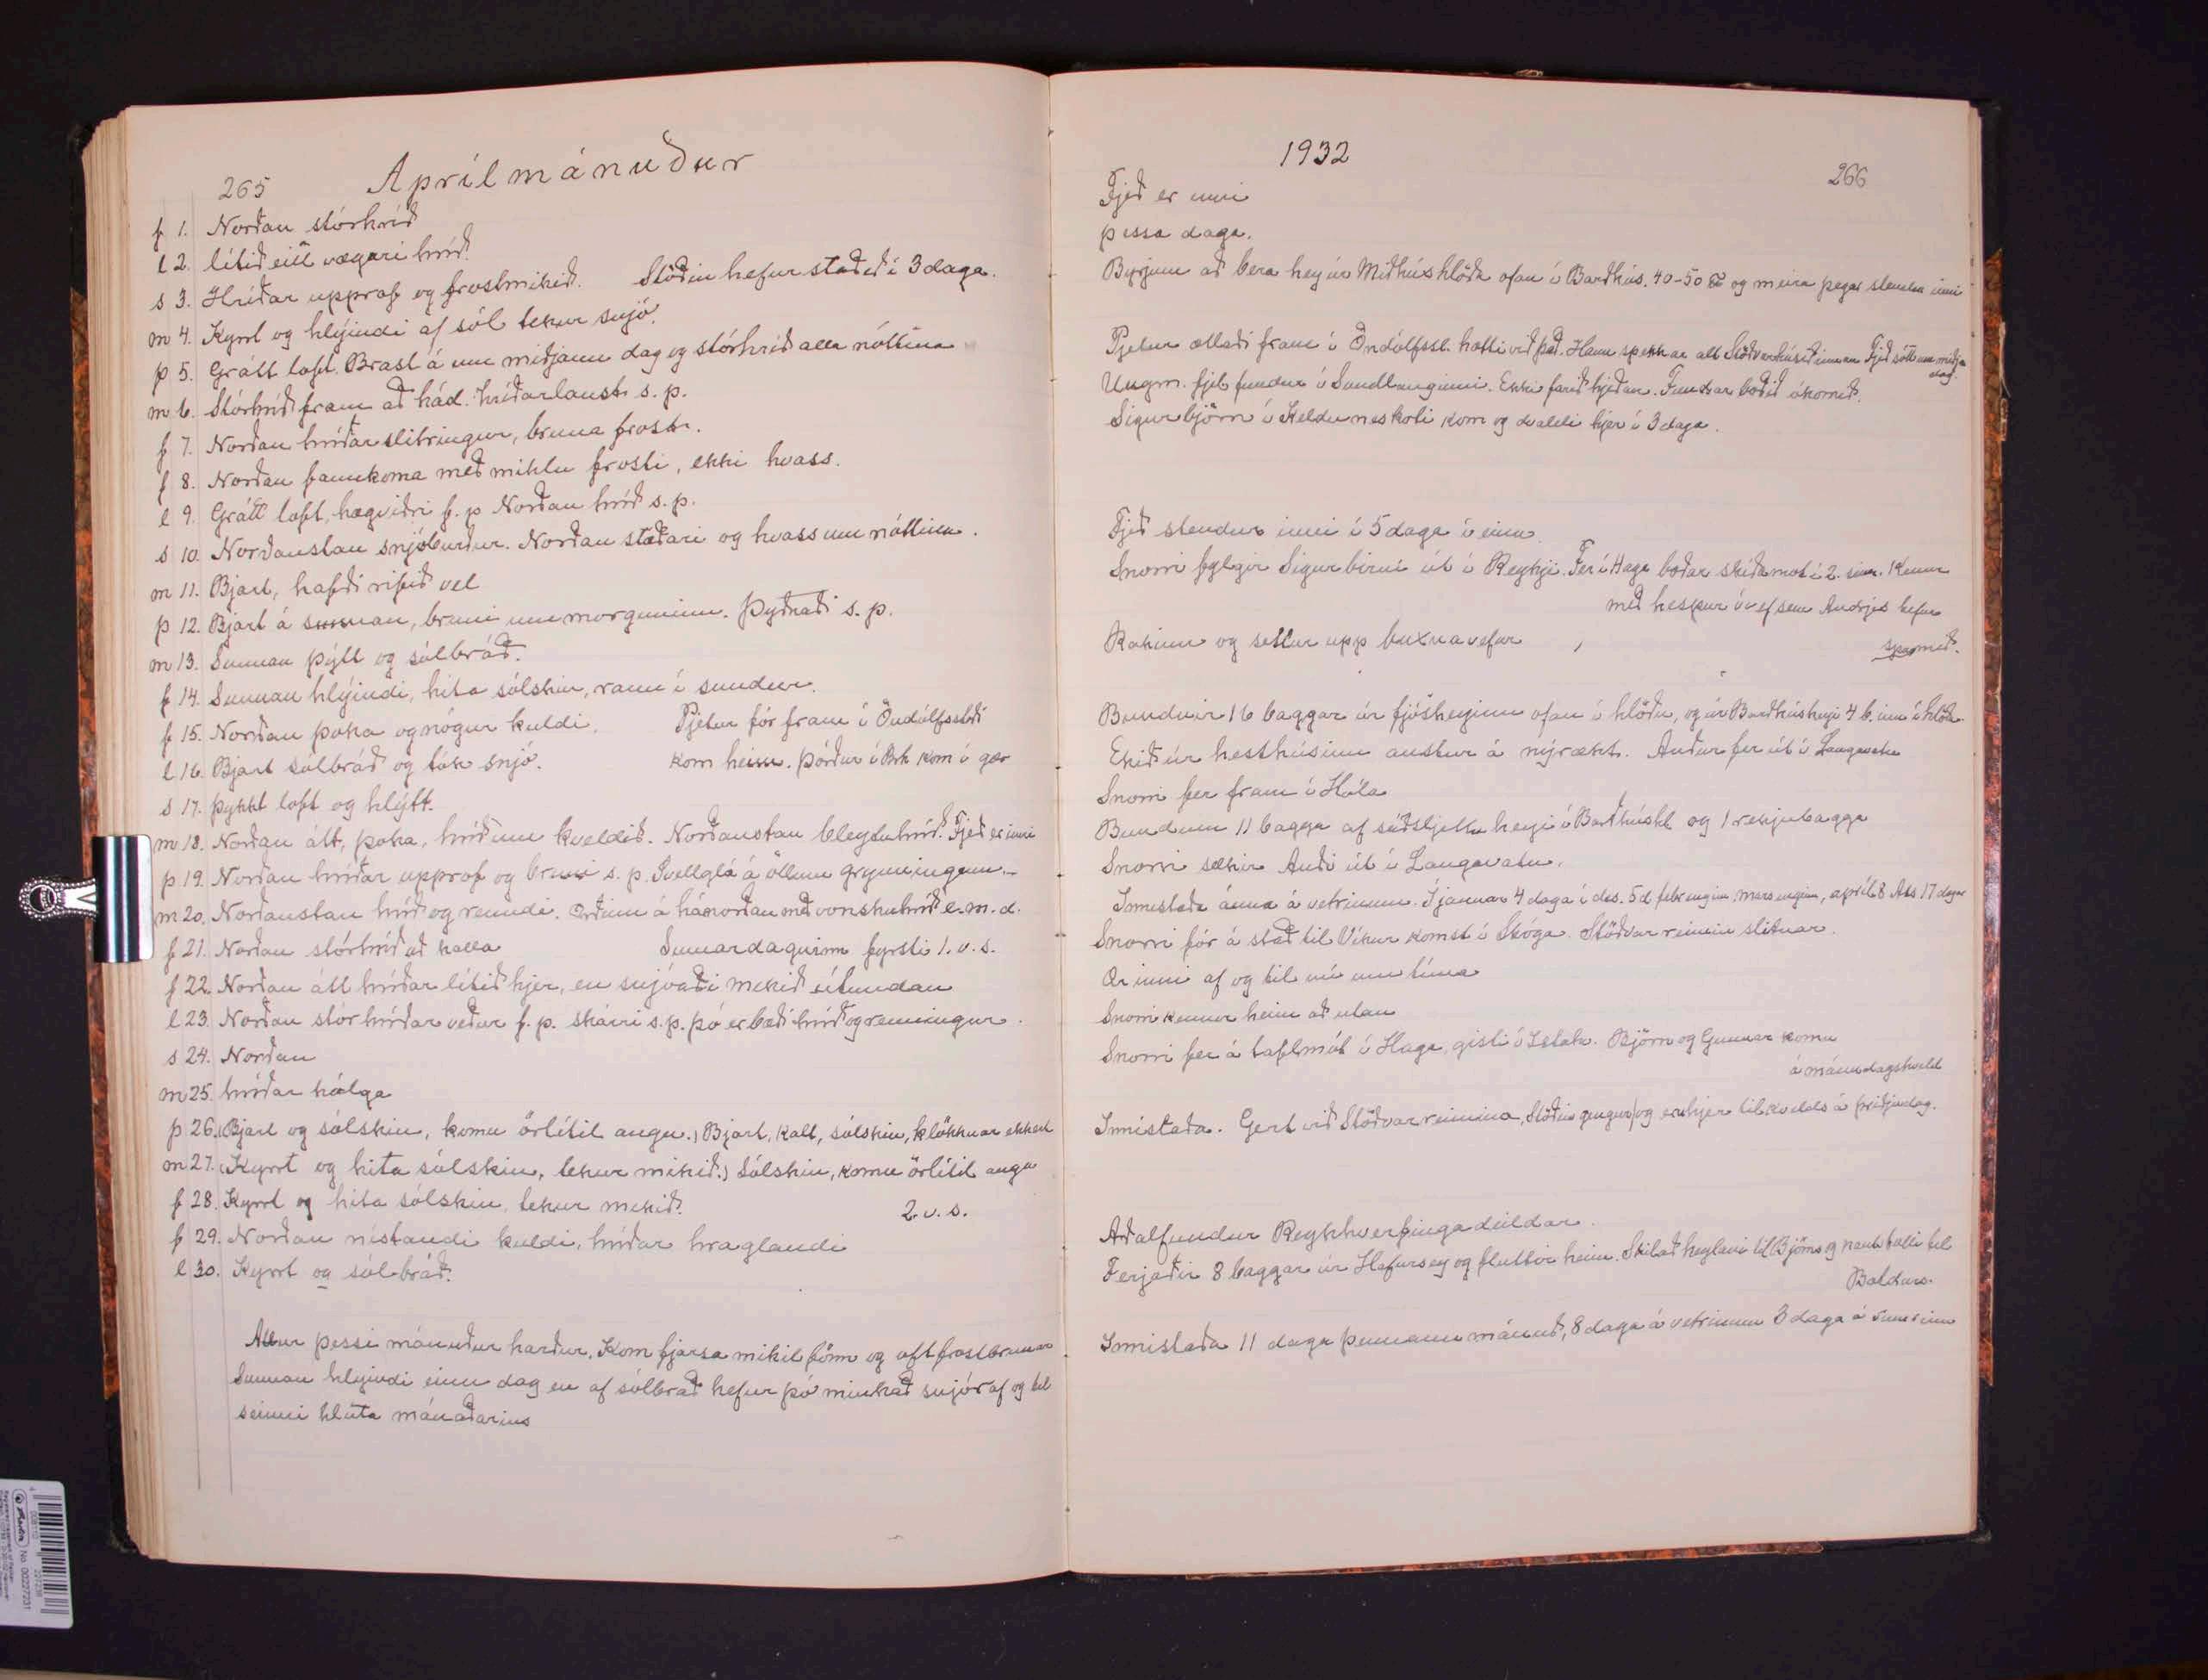 265 Aprílmánuður
f 1. Norðan stórhríð
l 2. lítið eitt vægari hríð.
s 3. Hríðar upprof og frostmikið. Stöðin hefur staðið í 3 daga.
m 4. Kyrrt og hlýindi af sól tekur snjó.
þ 5. Grátt loft. Brast á um miðjann dag og stórhríð alla nóttina
m 6. Stórhríð fram að hád. hríðarlaust s. p.
f 7. Norðan hríðarslitringur, bruna frost.
f 8. Norðan fannkoma með miklu frosti, ekki hvass.
l 9. Grátt loft, hægviðri f. p Norðan hríð s. p.
s 10. Norðaustan snjóburður. Norðan stæðari og hvass um nóttina.
m 11. Bjart, hafði rifið vel
þ 12. Bjart á sunnan, bruni um morguninn. Þyðnaði s. p.
m 13. Sunnan þýtt og sólbráð.
f 14. Sunnan hlýindi, hita sólskin, rann í sundur.
f 15. Norðan þoka og nógur kuldi. Pjetur fór fram í Öndólfsstði
l 16. Bjart sólbráð og tók snjó. kom heim. Þórður í Brk kom í gær
s 17. Þykkt loft og hlýtt.
m 18. Norðan átt, þoka, hríð um kveldið. Norðaustan bleytuhríð. Fjeð er inni
þ 19. Norðan hríðar upprof og bruni s. p. Svellglá á öllum grynningum.
m 20. Norðaustan hríð og renndi. Orðinn á hánorðan með vonskuhríð e. m. d.
f 21. Norðan stórhríð að kalla Sumardagurinn fyrsti 1. v. s.
f 22. Norðan átt hríðar lítið hjer, en snjóaði mikið útundan
l 23. Norðan stórhríðar veður f. p. skárri s. p. þó er bæði hríð og renningur.
s 24. Norðan
m 25. hríðar hálga
þ 26. (Bjart og sólskin, komu örlítil augu.) Bjart, kalt, sólskin, klökknar ekkert
m 27. (Kyrrt og hita sólskin, tekur mikið.) Sólskin, komu örlítil augu
f 28. Kyrrt og hita sólskin tekur mikið. 2. v. s.
f 29. Norðan nístandi kuldi, hríðar hraglandi
l 30. Kyrrt og sólbráð.
Allur þessi mánuður harður. Kom fjarsa mikil fönn og oft frostbrunar
Sunnan hlýindi einn dag en af sólbráð hefur þó minkað snjór af og til
seinni hluta mánaðarins
1932
266
Fjeð er inni
þessa daga.
Byrjum að bera hey úr Miðhúshlöðu ofan í Barðhús. 40-50 og meira þegar stendur inni
Pjetur ætlaði fram í Öndólfsst. hætti við það. Hann spekkar allt Stöðvarhúsið innan Fjeð sótt um miðja
dag.
Ungm. fjel fundur í Sundlauginni. Ekki farið hjeðan. Fundar boðið ókomið.
Sigurbjörn í Keldunesskoti kom og dvaldi hjer í 3 daga.
Fjeð stendur inni í 5 daga í einu.
Snorri fylgir Sigurbirni út í Reykji. Fer í Haga boðar skíðamót í 2. sinn. Kemur
með hespur í vef sem Andrjes hefur
spunnið.
Rakinn og settur upp buxnavefur
Bundnir 16 baggar úr fjósheyinu ofan í hlöðu, og úr Barðhúsheyi 4 b. inn í hlöðu
Ekið úr hesthúsinu austur á nýrækt. Auður fer út í Laugavatn
Snorri fer fram í Hóla
Bundum 11 bagga af heyi í Barðhúshl og 1 rekjubagga
Snorri sækir Auði út í Laugavatn.
Innistaða ánna á vetrinum. Í janúar 4 daga í des. 5 d febr enginn mars enginn, apríl 8 Als 17 dagar
Snorri fór á stað til Víkur komst í Skóga. Stöðvarreimin slitnar.
Ær inni af og til nú um tíma
Snorri kemur heim að utan
Snorri fer á taflmót í Haga, gisti í Ystahv. Björn og Gunnar komu
á mánudagskveld
Innistaða. Gert við Stöðvarreimina, Stöðin gengur og eru hjer til kvelds á þriðjudag.
Aðalfundur Reykhverfingadeildar.
Ferjaðir 8 baggar úr Hafursey og fluttir heim. Skilað heyláni til Björns og nautstolli til
Baldurs.
Innistaða 11 daga þennann mánuð, 8 daga á vetrinum 3 daga á sumrinu